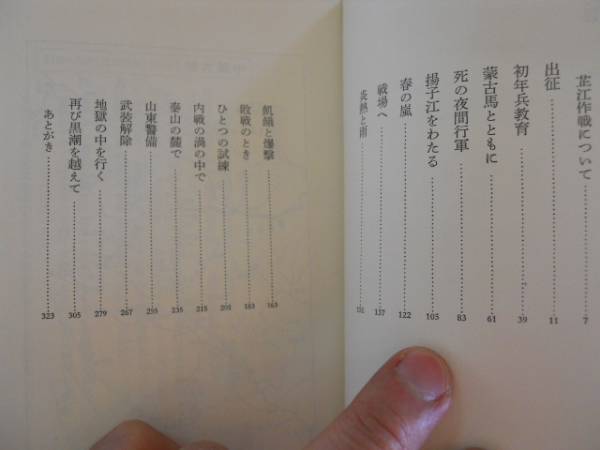 芷江作戦について 7
出征 11
初年兵教育 39
蒙古馬とともに 61
死の夜間行軍 83
揚子江をわたる 105
春の嵐 122
戦場へ 137
炎熱と雨 151
飢餓と爆撃 163
敗戦のとき 183
ひとつの試練 205
内戦の渦の中で 215
泰山の麓で 235
山東警備 255
武装解除 267
地獄の中を行く 279
再び黒潮を越えて 305
あとがき 323